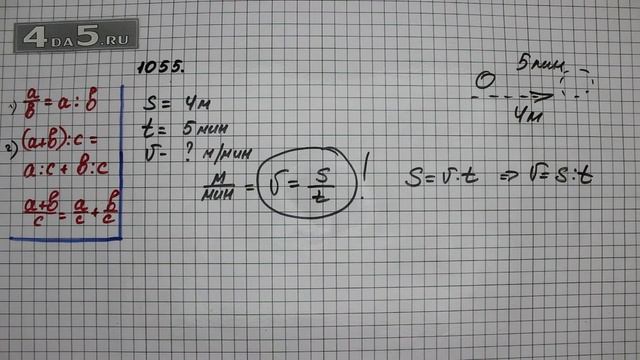 4DA5.RU
1055.
1) a/b = a : b
2) (a+b) : c =
a : c + b : c
a+b/c = a/c + b/c
S = 4м
t = 5 мин
v - ? м/мин
м/мин = v = s/t !
S = v · t ⇒ v = s : t
5 мин
4м